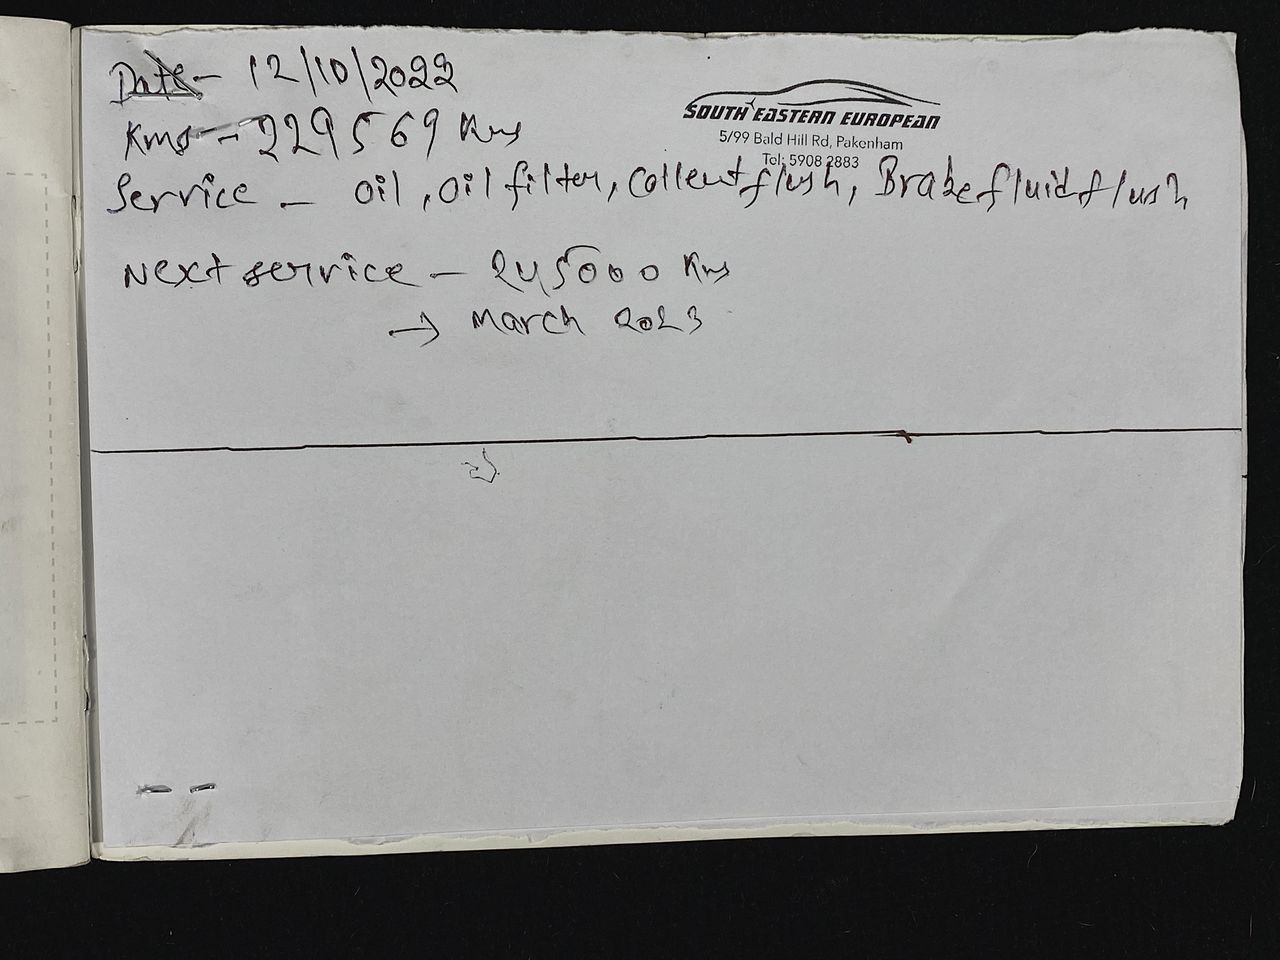 Date - 12/10/2022
Kms - 229569 Kms
SOUTH EASTERN EUROPEAN
5/99 Bald Hill Rd, Pakenham
Tel: 5908 2883
Service - Oil, Oil filter, Collent flush, Brake fluid flush
Next service - 245000 Kms
→ March 2023